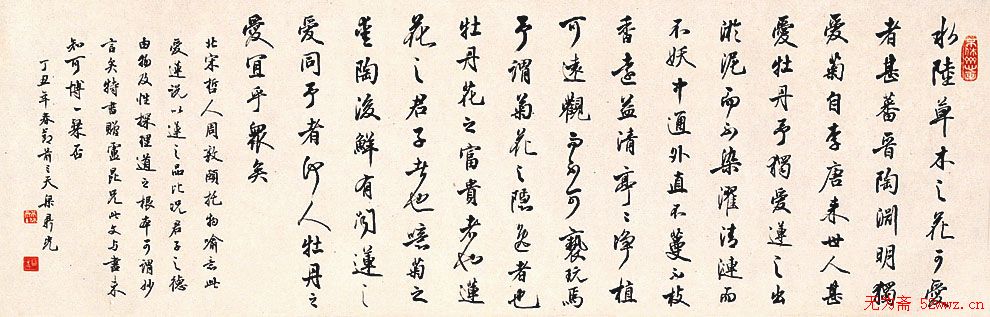 水陸草木之花可愛
者甚蕃晋陶淵明獨
愛菊自李唐来世人甚
愛牡丹予獨愛蓮之出
淤泥而不染濯清漣而
不妖中通外直不蔓不枝
香遠益清亭亭淨植
可遠觀而不可褻玩焉
予謂菊花之隱逸者也
牡丹花之富貴者也蓮
花之君子者也噫菊之
愛陶後鮮有聞蓮之
愛同予者何人牡丹之
愛宜乎衆矣
北宋哲人周敦頤托物喻志此
愛蓮説以蓮之品比況君子之德
由物及性探理道之根本可謂妙
言矣特書贈靈昆兄此文与書未
知可博一粲否
丁丑年春節前三天梁鼎光
无为斋 52wwz.cn